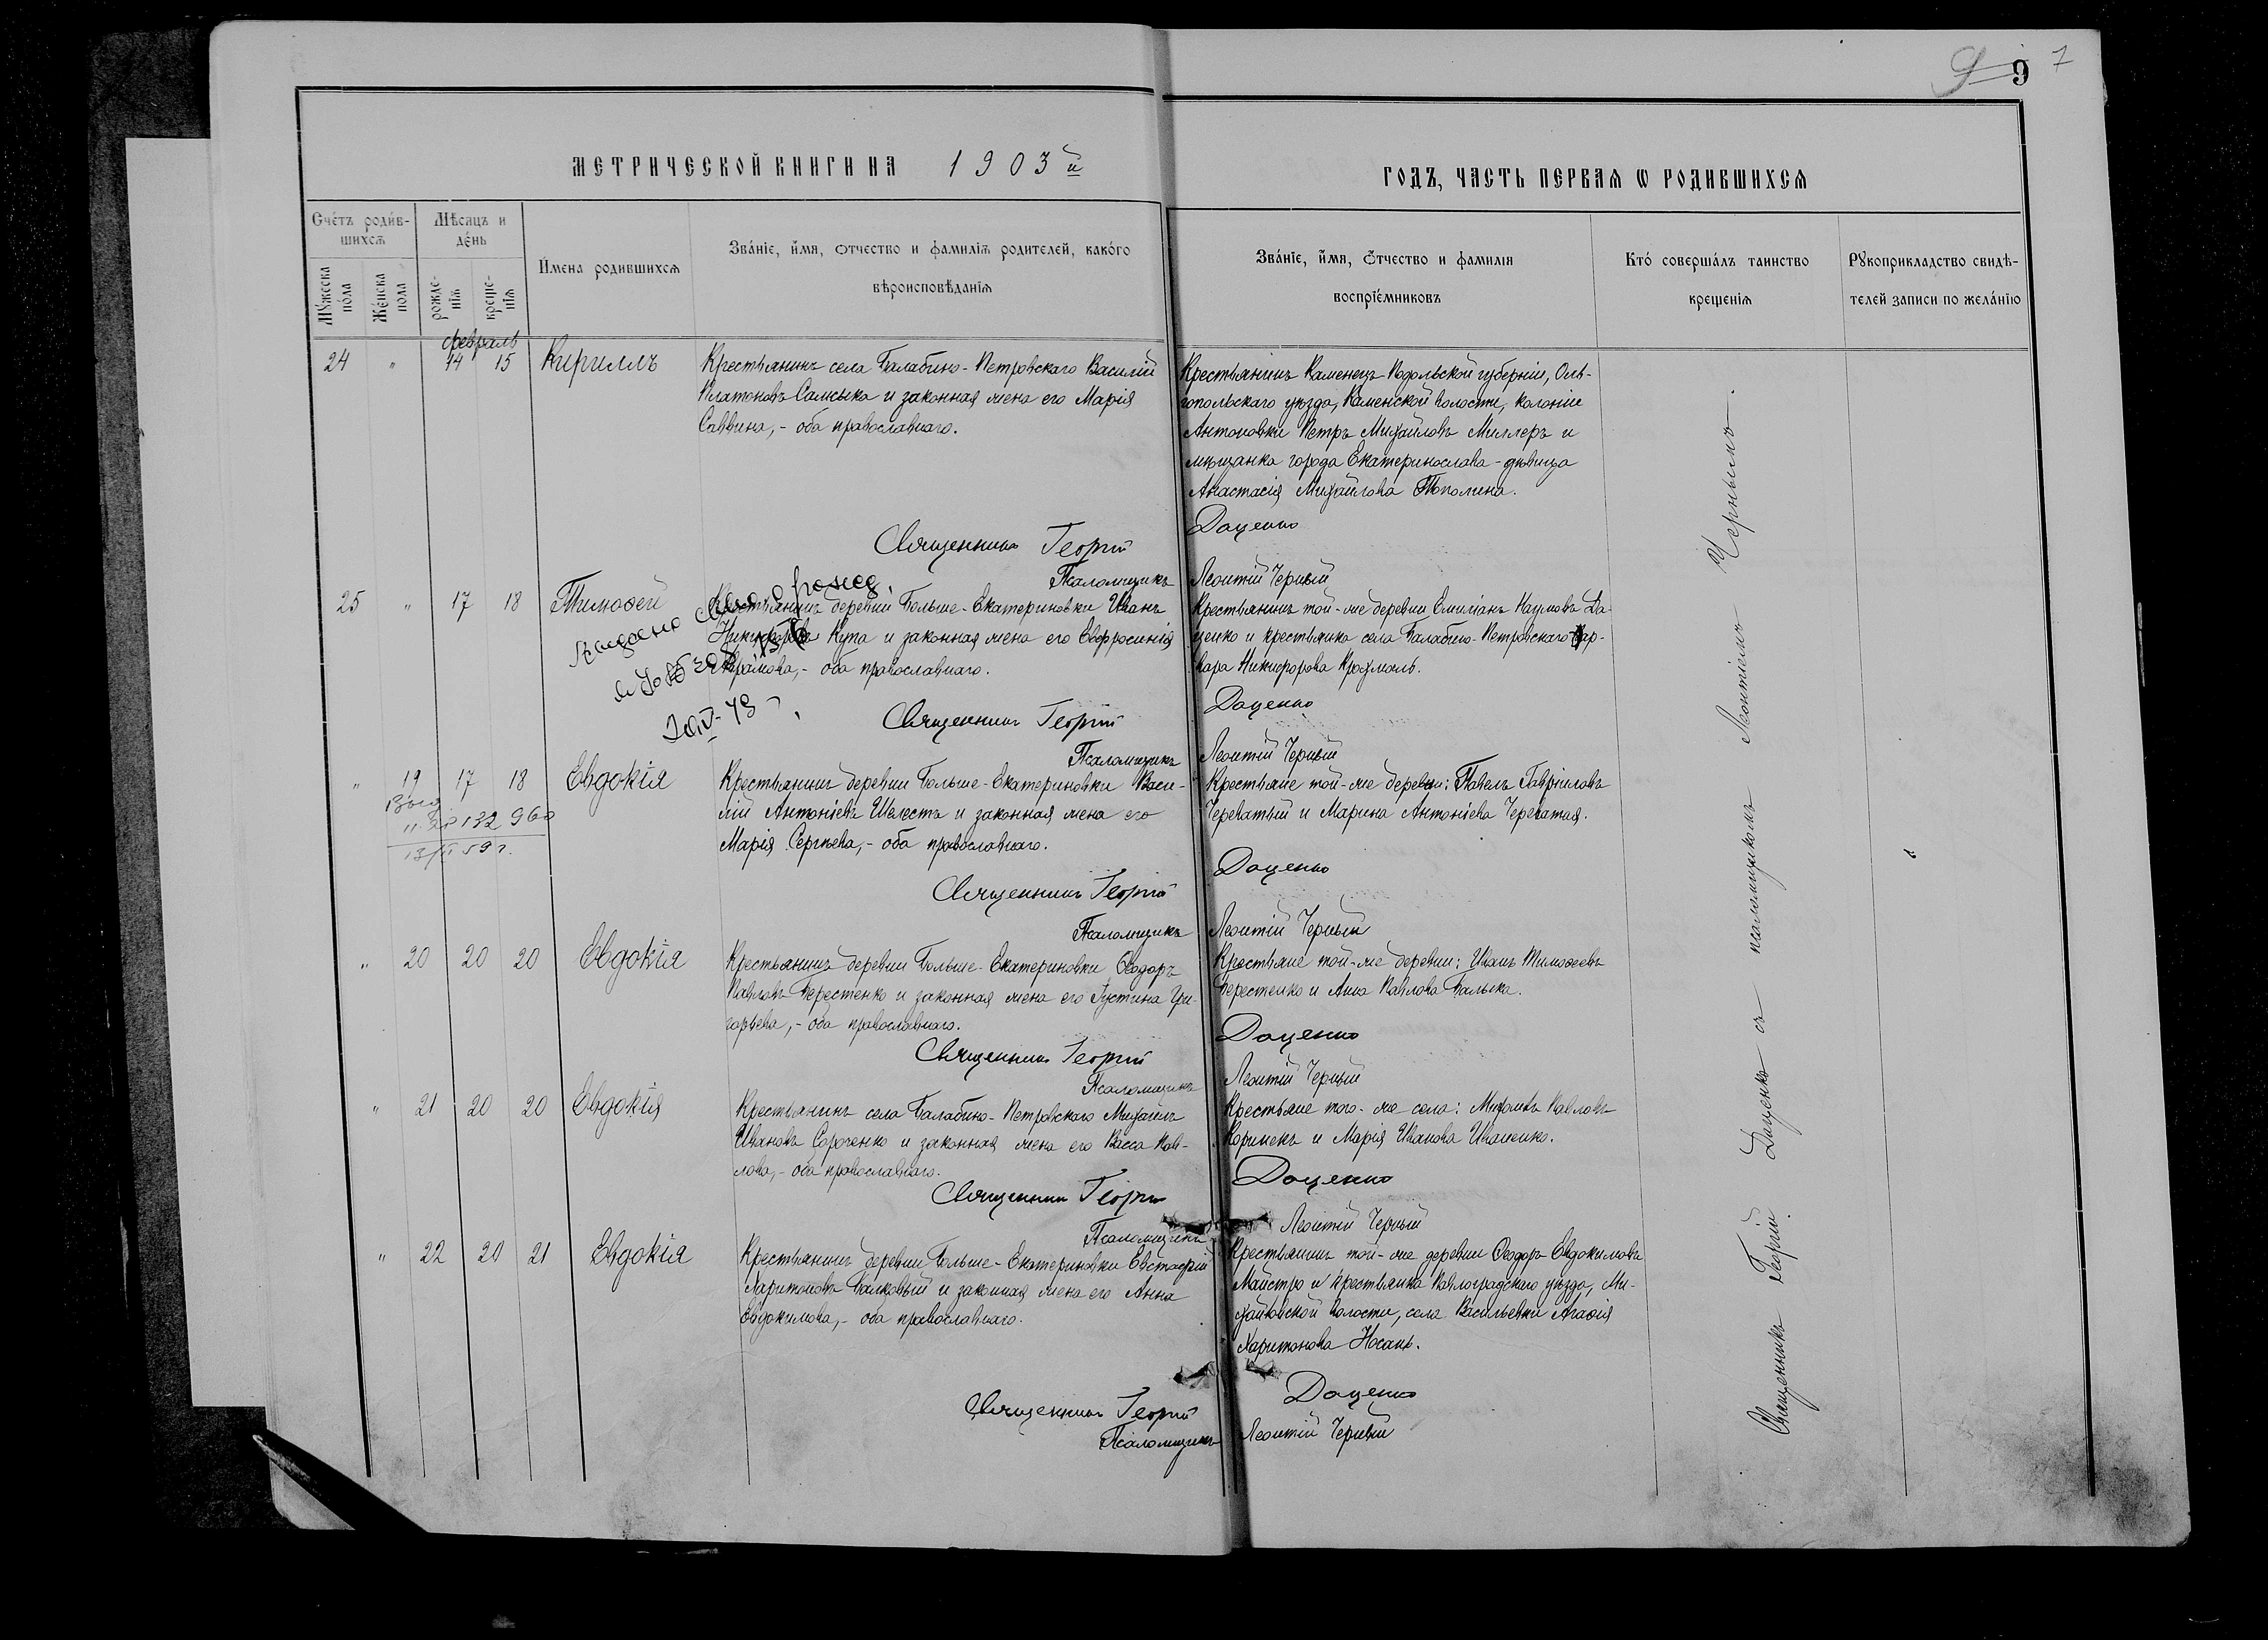 9 9 7
МЕТРИЧЕСКОЙ КНИГИ НА 1903й
ГОДЪ, ЧАСТЬ ПЕРВАЯ Ѡ РОДИВШИХСѦ
Счетъ родив-
шихсѧ
Мѣсяцъ и
день
Мꙋжеска
пола
Женска
пола
рожде-
нїѧ
креще-
нїѧ
Имена родившихсѧ
Званїе, имя, ѿтчество и фамилїѧ родителей, какого
вѣроисповѣданїѧ
Званїе, имя, ѿтчество и фамилїѧ
воспрїемниковъ
Кто совершалъ таинство
крещенїѧ
Рꙋкоприкладство свидѣ-
телей записи по желанїю
февраль
24 " 14 15 Кириллъ
Крестьянинъ села Балабино-Петровскаго Василій
Платоновъ Самсыка и законная жена его Марія
Саввина,- оба православнаго.
Крестьянинъ Каменецъ-Подольской губерніи, Оль-
гопольскаго уѣзда, Каменской волости, колоніи
Антоновки Петръ Михайловъ Миллеръ и
мѣщанка города Екатеринослава - дѣвица
Анастасія Михайлова Тополина.
Священникъ Георгій Доценко
Псаломщикъ Леонтій Черный
25 " 17 18 Тимоѳей
Крестьянинъ деревни Больше-Екатериновки Иванъ
Никифоровъ Купа и законная жена его Евфросинія
Абрамова,- оба православнаго.
Крестьянинъ той-же деревни Емиліанъ Наумовъ Да-
ценко и крестьянка села Балабино-Петровскаго Вар-
вара Никифорова Крохмаль.
Священникъ Георгій Доценко
Псаломщикъ Леонтій Черный
" 19 17 18 Евдокія
II 132 960
13/II 59 г.
Крестьянинъ деревни Больше-Екатериновки Васи-
лій Антоніевъ Шелестъ и законная жена его
Марія Сергѣева,- оба православнаго.
Крестьяне той-же деревни: Павелъ Гавріиловъ
Череватый и Марина Антоніева Череватая.
Священникъ Георгій Доценко
Псаломщикъ Леонтій Черный
" 20 20 20 Евдокія
Крестьянинъ деревни Больше-Екатериновки Ѳеодоръ
Павловъ Берестенко и законная жена его Іустина Гри-
горьева,- оба православнаго.
Крестьяне той-же деревни: Иванъ Тимоѳеевъ
Берестенко и Анна Павлова Балыка.
Священникъ Георгій Доценко
Псаломщикъ Леонтій Черный
" 21 20 20 Евдокія
Крестьянинъ села Балабино-Петровскаго Михаилъ
Ивановъ Сороченко и законная жена его Васса Пав-
лова,- оба православнаго.
Крестьяне того-же села: Михаилъ Павловъ
и Марія Иванова Иваненко.
Священникъ Георгій Доценко
Псаломщикъ Леонтій Черный
" 22 20 21 Евдокія
Крестьянинъ деревни Больше-Екатериновки Евстафій
Харитоновъ Балковый и законная жена его Анна
Евдокимова,- оба православнаго.
Крестьянинъ той-же деревни Ѳеодоръ Евдокимовъ
Майстро и крестьянка Павлоградскаго уѣзда, Ми-
хайловской волости, села Васильевки Агаѳія
Харитонова Носань.
Священникъ Георгій Доценко
Псаломщикъ Леонтій Черный
Священникъ Георгій Доценко съ псаломщикомъ Леонтіемъ Чернымъ.